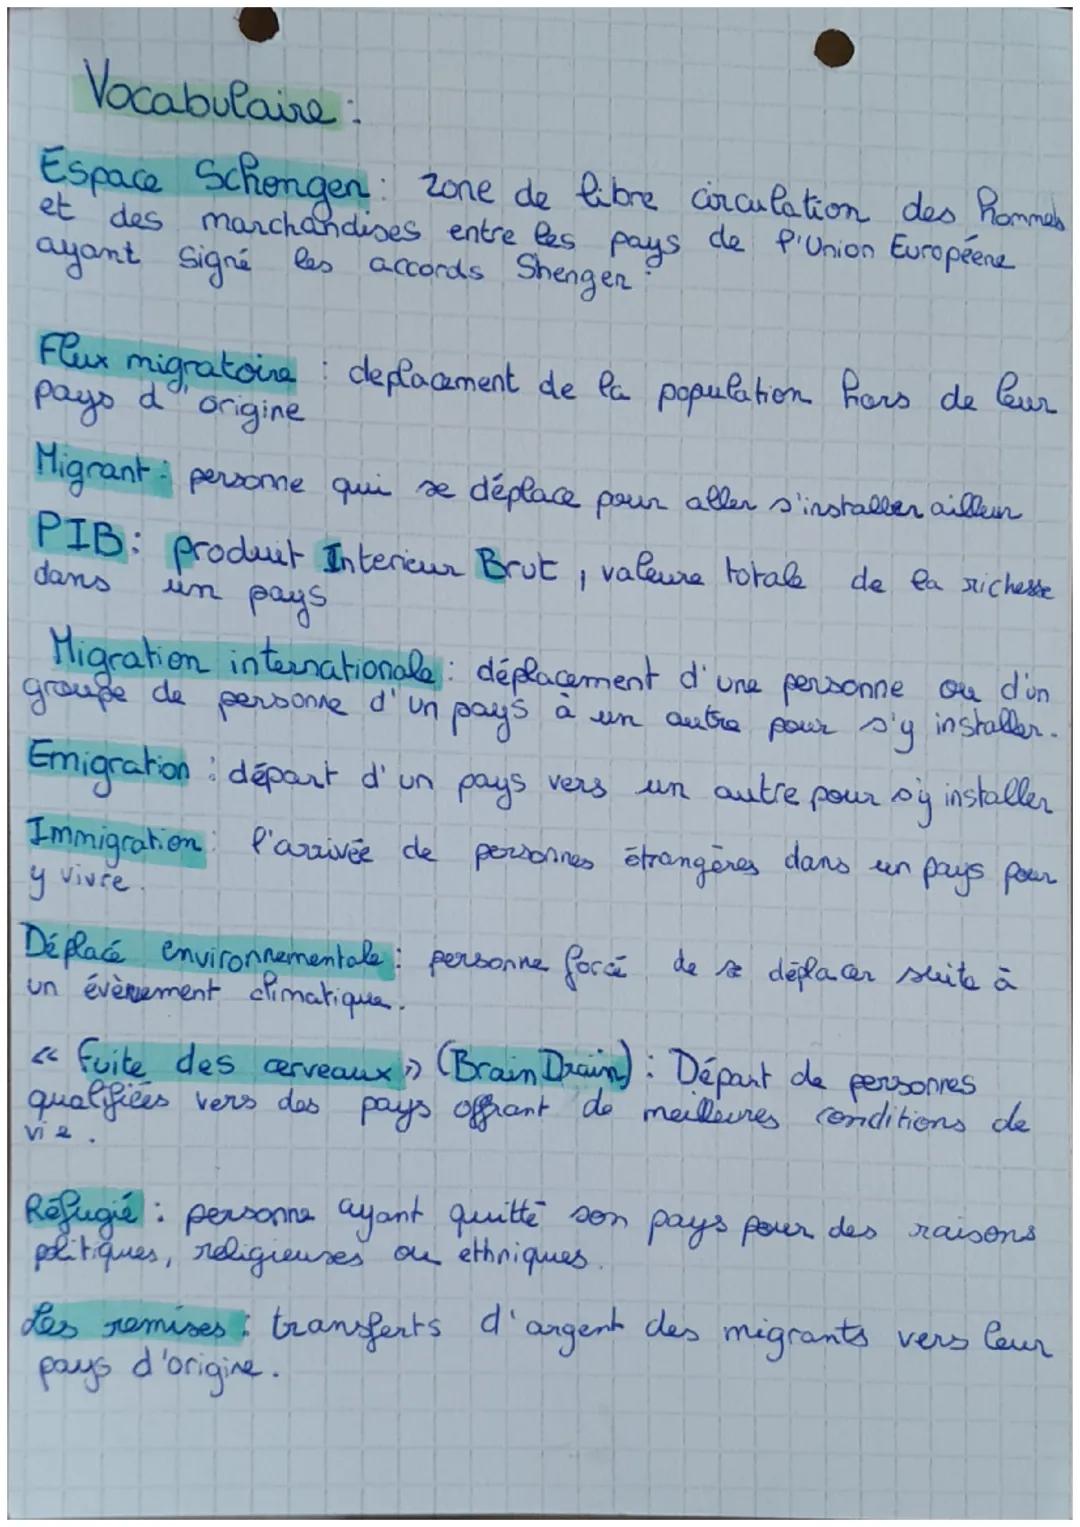 Vocabulaire :
Espace Schengen : zone de libre circulation des hommes
et des marchandises entre les pays de l'Union Européene
ayant signé les accords Shengen.
Flux migratoire : deplacement de la population hors de leur
pays d'origine
Migrant : personne qui se déplace pour aller s'installer ailleur
PIB : produit Interieur Brut, valeure totale de la richesse
dans un pays
Migration internationale : déplacement d'une personne ou d'un
groupe de personne d'un pays à un autre pour s'y installer.
Emigration : départ d'un pays vers un autre pour s'y installer
Immigration : l'arrivée de personnes étrangères dans un pays pour
y vivre.
Déplacé environnementale : personne forcé de se déplacer suite à
un évènement climatique.
« fuite des cerveaux » (Brain Drain) : Départ de personnes
qualifiées vers des pays offrant de meilleures conditions de
vie.
Réfugié : personne ayant quitté son pays pour des raisons
politiques, religieuses ou ethniques.
Les remises : transferts d'argent des migrants vers leur
pays d'origine.